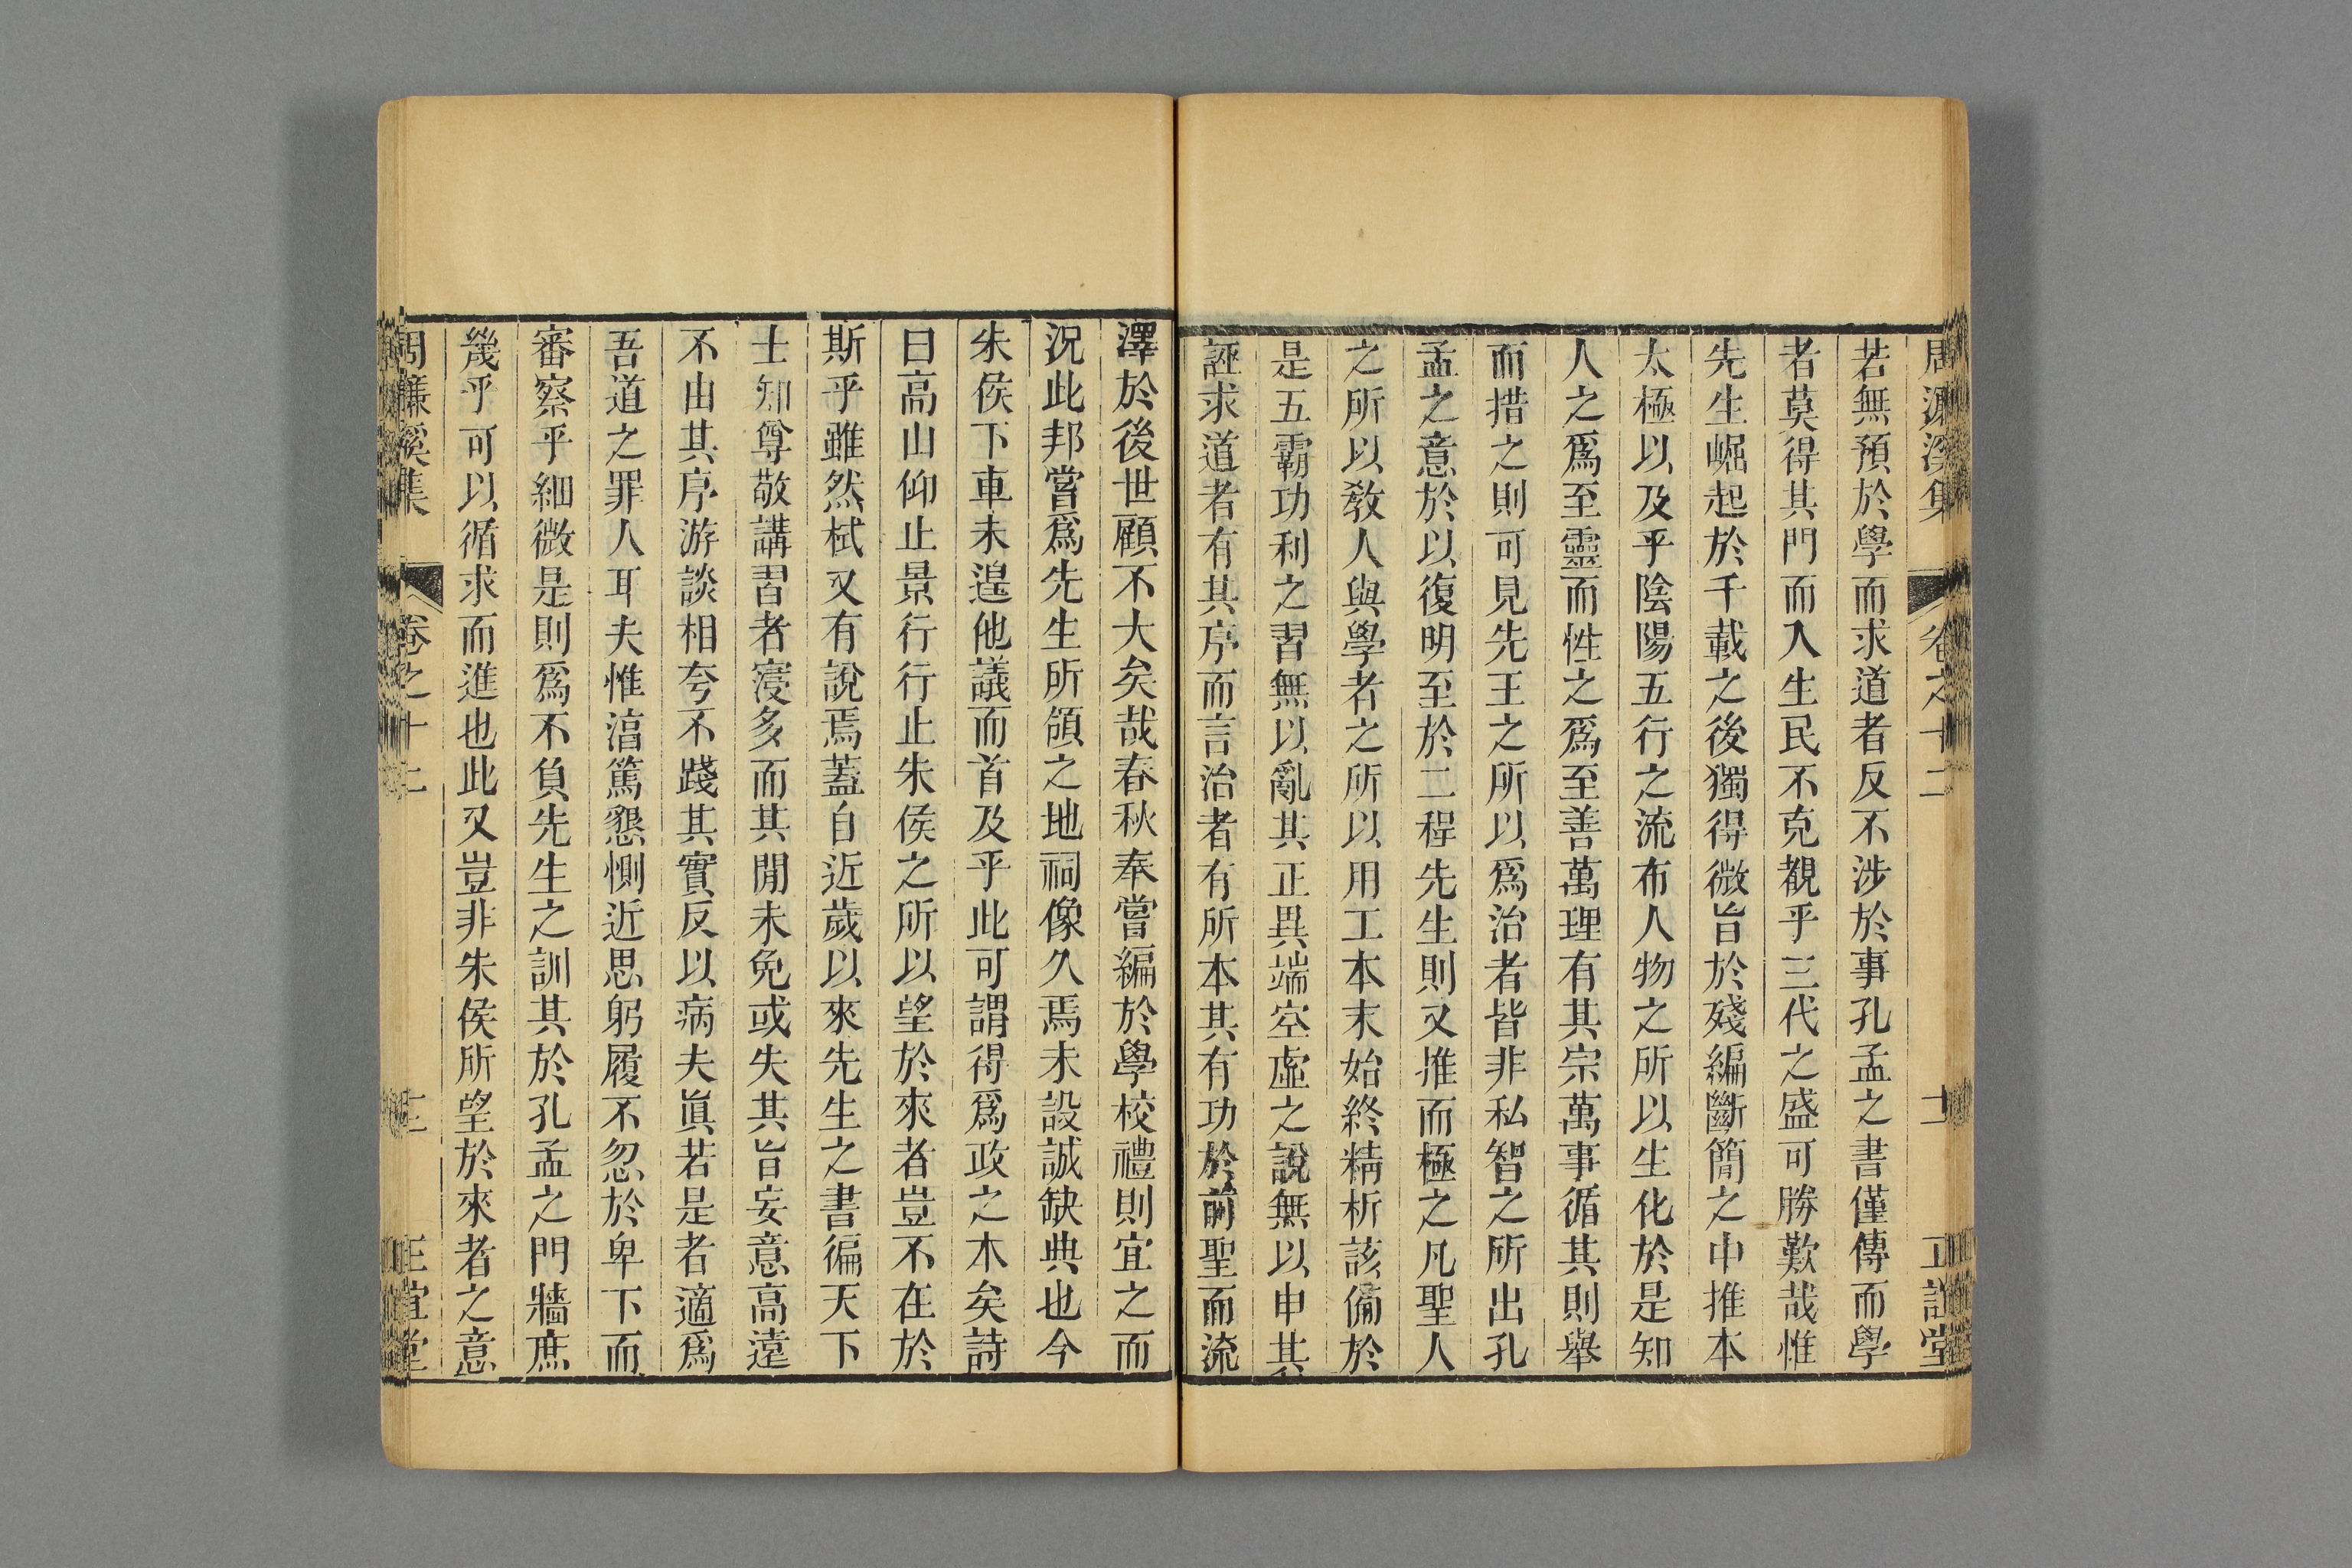 周濂溪集 卷之十二 十二 正誼堂
若無預於學而求道者反不涉於事孔孟之書僅傳而學
者莫得其門而入生民不克覩乎三代之盛可勝歎哉惟
先生崛起於千載之後獨得微旨於殘編斷簡之中推本
太極以及乎陰陽五行之流布人物之所以生化於是知
人之爲至靈而性之爲至善萬理有其宗萬事循其則舉
而措之則可見先王之所以爲治者皆非私智之所出孔
孟之意於以復明至於二程先生則又推而極之凡聖人
之所以敎人與學者之所以用工本末始終精析該備於
是五霸功利之習無以亂其正異端空虛之說無以申其
誣求道者有其序而言治者有所本其有功於前聖而流
澤於後世顧不大矣哉春秋奉嘗編於學校禮則宜之而
況此邦嘗爲先生所領之地祠像久焉未設誠缺典也今
朱侯下車未遑他議而首及乎此可謂得爲政之木矣詩
曰高山仰止景行行止朱侯之所以望於來者豈不在於
斯乎雖然栻又有說焉蓋自近歲以來先生之書徧天下
士知尊敬講習者寖多而其閒未免或失其旨妄意高遠
不由其序游談相夸不踐其實反以病夫眞若是者適爲
吾道之罪人耳夫惟淯篤懇惻近思躬履不忽於卑下而
審察乎細微是則爲不負先生之訓其於孔孟之門牆庶
幾乎可以循求而進也此又豈非朱侯所望於來者之意
周濂溪集 卷之十二 正誼堂